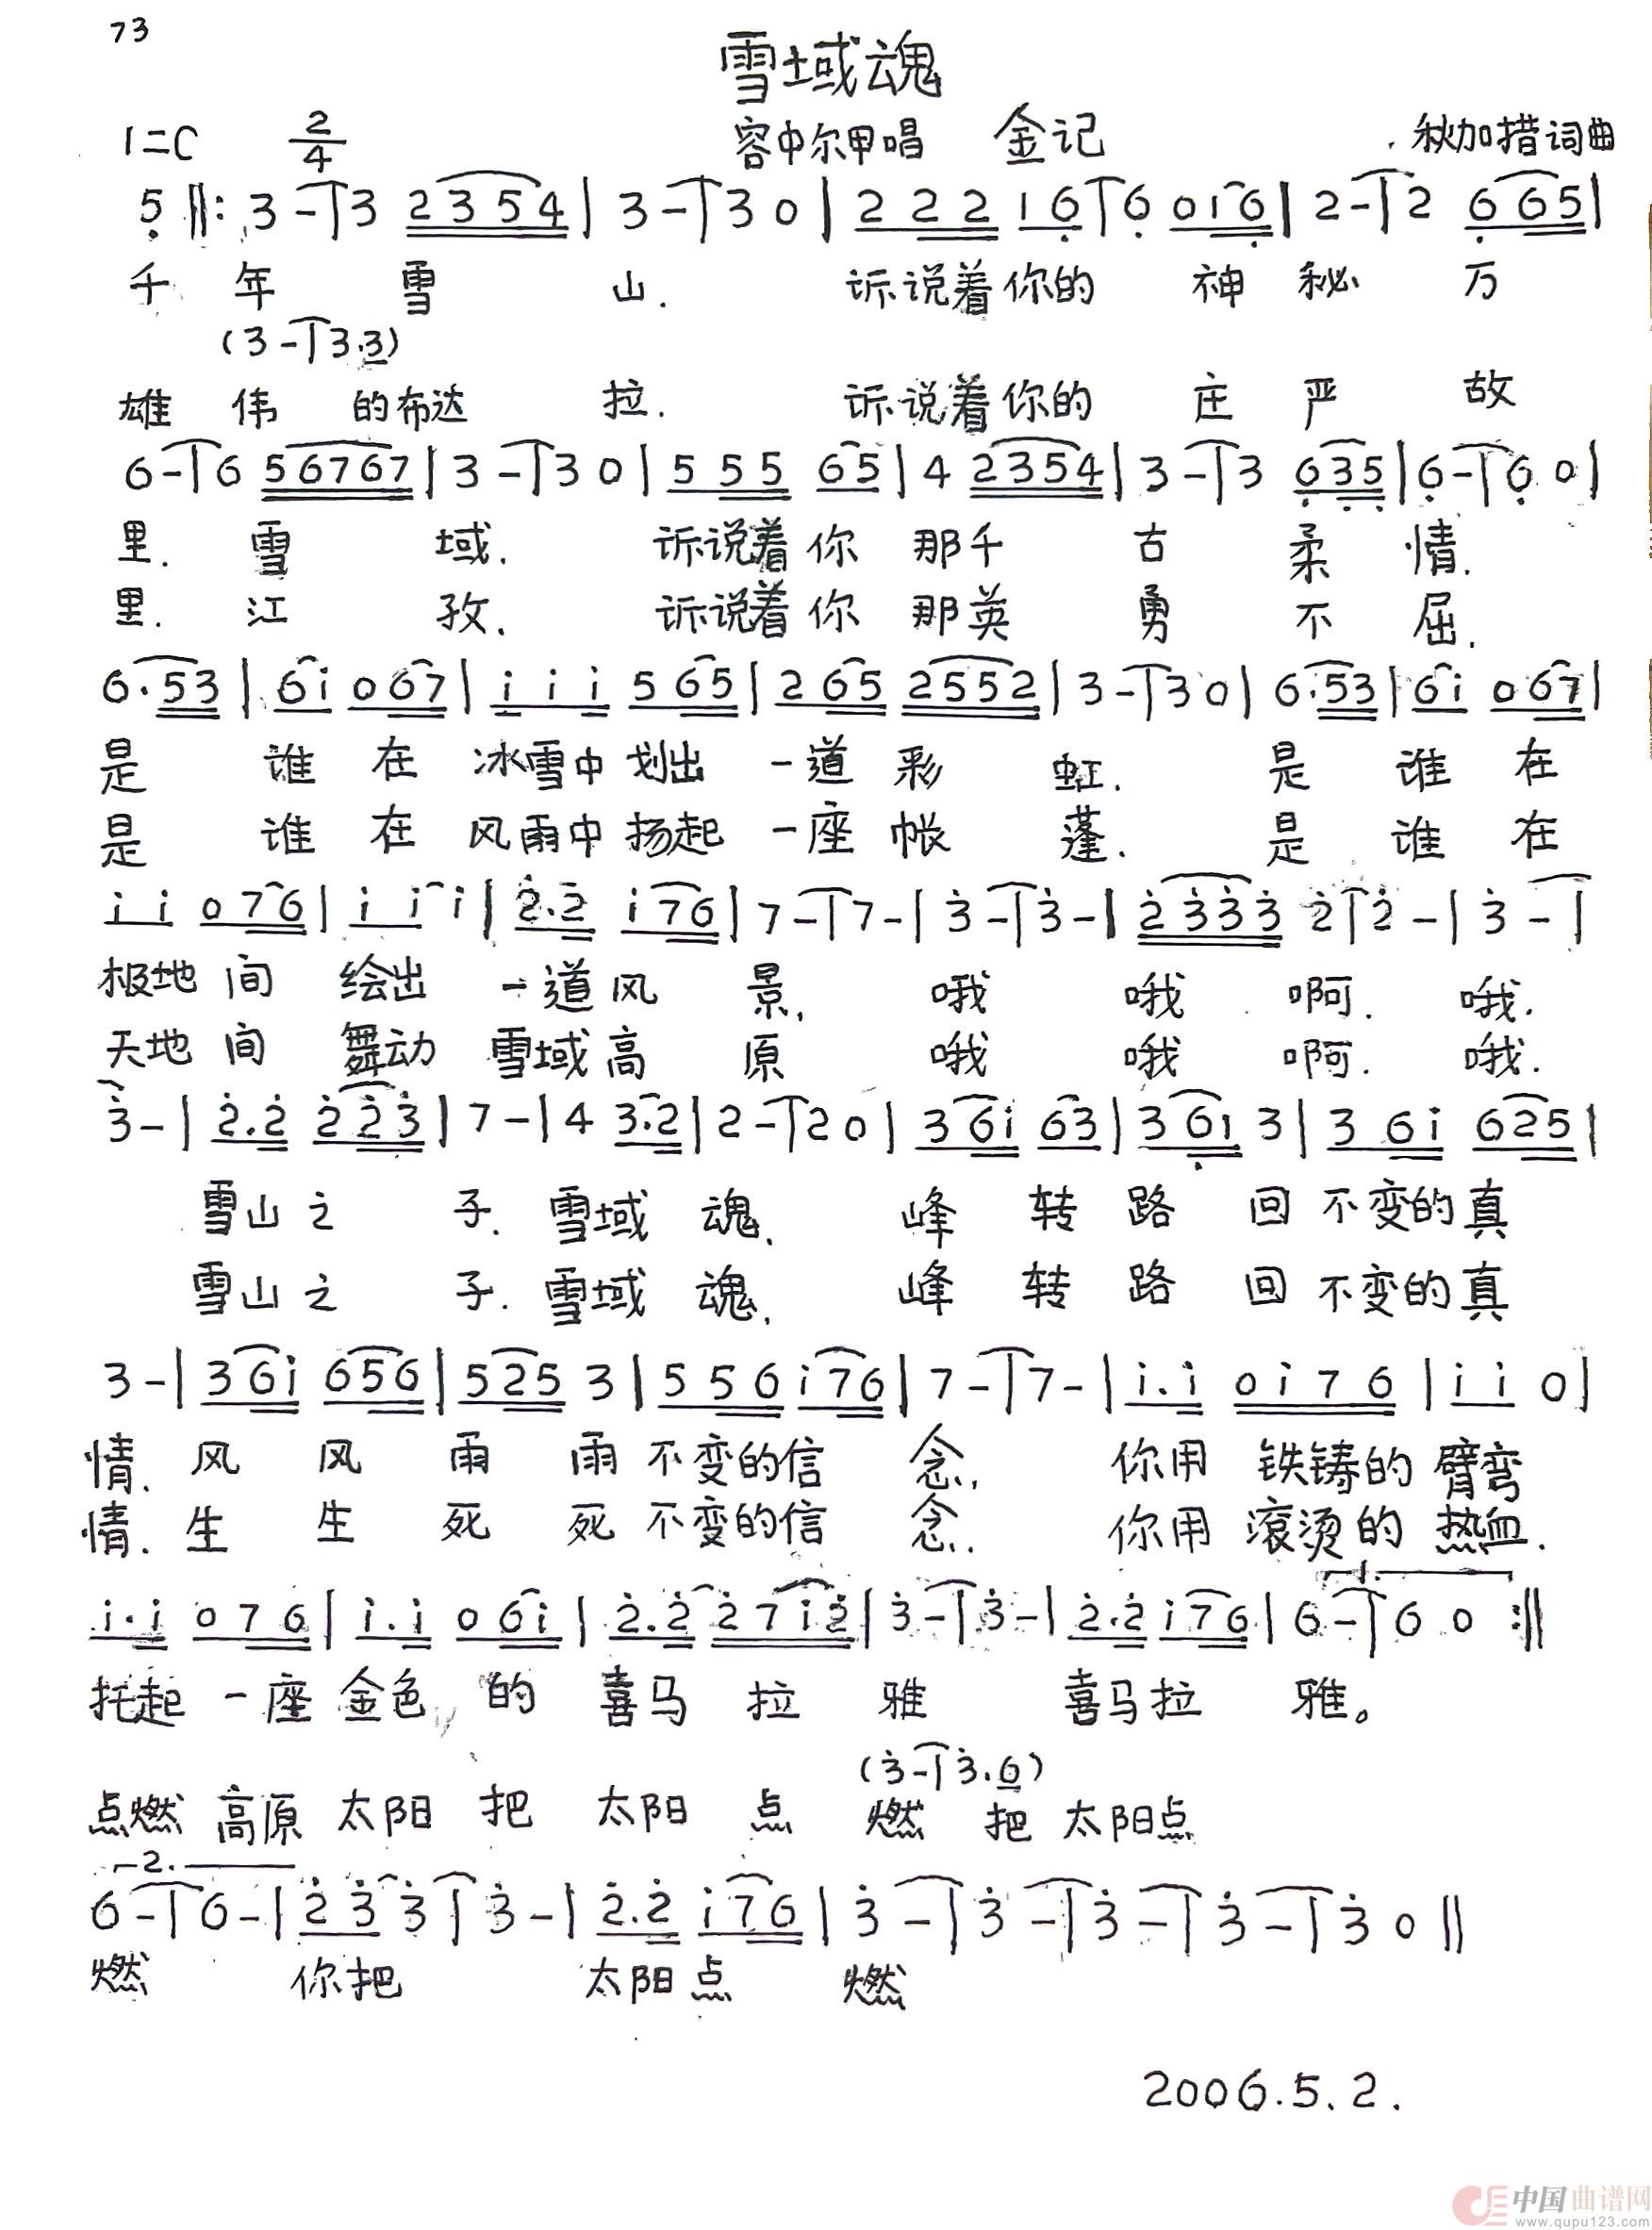 73
雪域魂
1=C 2/4 容中尔甲唱 金记 秋加措词曲
5̣ ‖: 3 - | 3 2354 | 3 - | 3 0 | 2 2 2 1 6̣ | 6̣ 0 1 6̣ | 2 - | 2 6̣ 6 5 |
千 年 雪 山. 诉说着你的 神 秘 万
(3 - | 3. 3)
雄 伟 的布达 拉. 诉说着你的 庄 严 故
6 - | 6 56767 | 3 - | 3 0 | 5 5 5 6 5 | 4 2354 | 3 - | 3 6̣ 3̣ 5̣ | 6̣ - | 6̣ 0 |
里. 雪 域. 诉说着你 那千 古 柔 情.
里. 江 孜. 诉说着你 那英 勇 不 屈.
6. 53 | 6 i 0 6 7 | i i i 5 6 5 | 2 6 5 2552 | 3 - | 3 0 | 6. 53 | 6 i 0 6 7 |
是 谁 在 冰雪中 划出 一道 彩 虹. 是 谁 在
是 谁 在 风雨中 扬起 一座 帐 蓬. 是 谁 在
i i 0 7 6 | i i i | 2̇. 2̇ i 7 6 | 7 - | 7 - | 3̇ - | 3̇ - | 2̇ 3̇ 3̇ 3̇ 2̇ | 2̇ - | 3̇ - |
极地 间 绘出 一道风 景, 哦 哦 啊. 哦.
天地 间 舞动 雪域高 原 哦 哦 啊. 哦.
3̇ - | 2̇. 2̇ 2̇ 2̇ 3̇ | 7 - | 4 3. 2 | 2 - | 2 0 | 3 6 i 6 3 | 3 6̣ 1 3 | 3 6 i 6 2 5 |
雪山之 子. 雪域 魂. 峰 转 路 回 不变的真
雪山之 子. 雪域 魂. 峰 转 路 回 不变的真
3 - | 3 6 i 6 5 6 | 5 2 5 3 | 5 5 6 i 7 6 | 7 - | 7 - | i. i 0 i 7 6 | i i 0 |
情. 风 风 雨 雨 不变的信 念. 你用 铁铸的 臂弯
情. 生 生 死 死 不变的信 念. 你用 滚烫的 热血.
1.
i. i 0 7 6 | i. i 0 6 i | 2̇. 2̇ 2̇ 7 i 2̇ | 3̇ - | 3̇ - | 2̇. 2̇ i 7 6 | 6 - | 6 0 :‖
托起 一座 金色 的 喜马 拉 雅 喜马拉 雅。
(3̇ - | 3̇. 6)
点燃 高原 太阳 把 太阳 点 燃 把 太阳点
2.
6 - | 6 - | 2̇ 3̇ 3̇ | 3̇ - | 2̇. 2̇ i 7 6 | 3̇ - | 3̇ - | 3̇ - | 3̇ - | 3̇ 0 ‖
燃 你把 太阳点 燃
2006.5.2.
中国曲谱网
www.qupu123.com